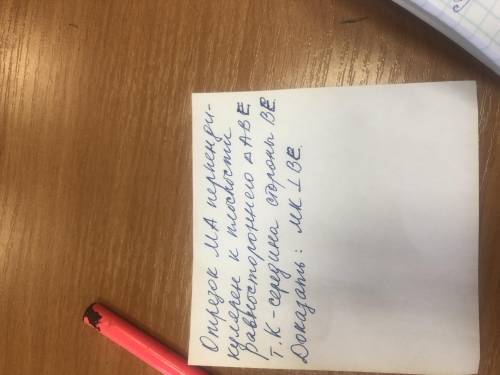 Отрезок МА перпенди-
кулярен к плоскости
равностороннего △ АВЕ
т. К - середина стороны ВЕ.
Доказать: МК ⊥ ВЕ.